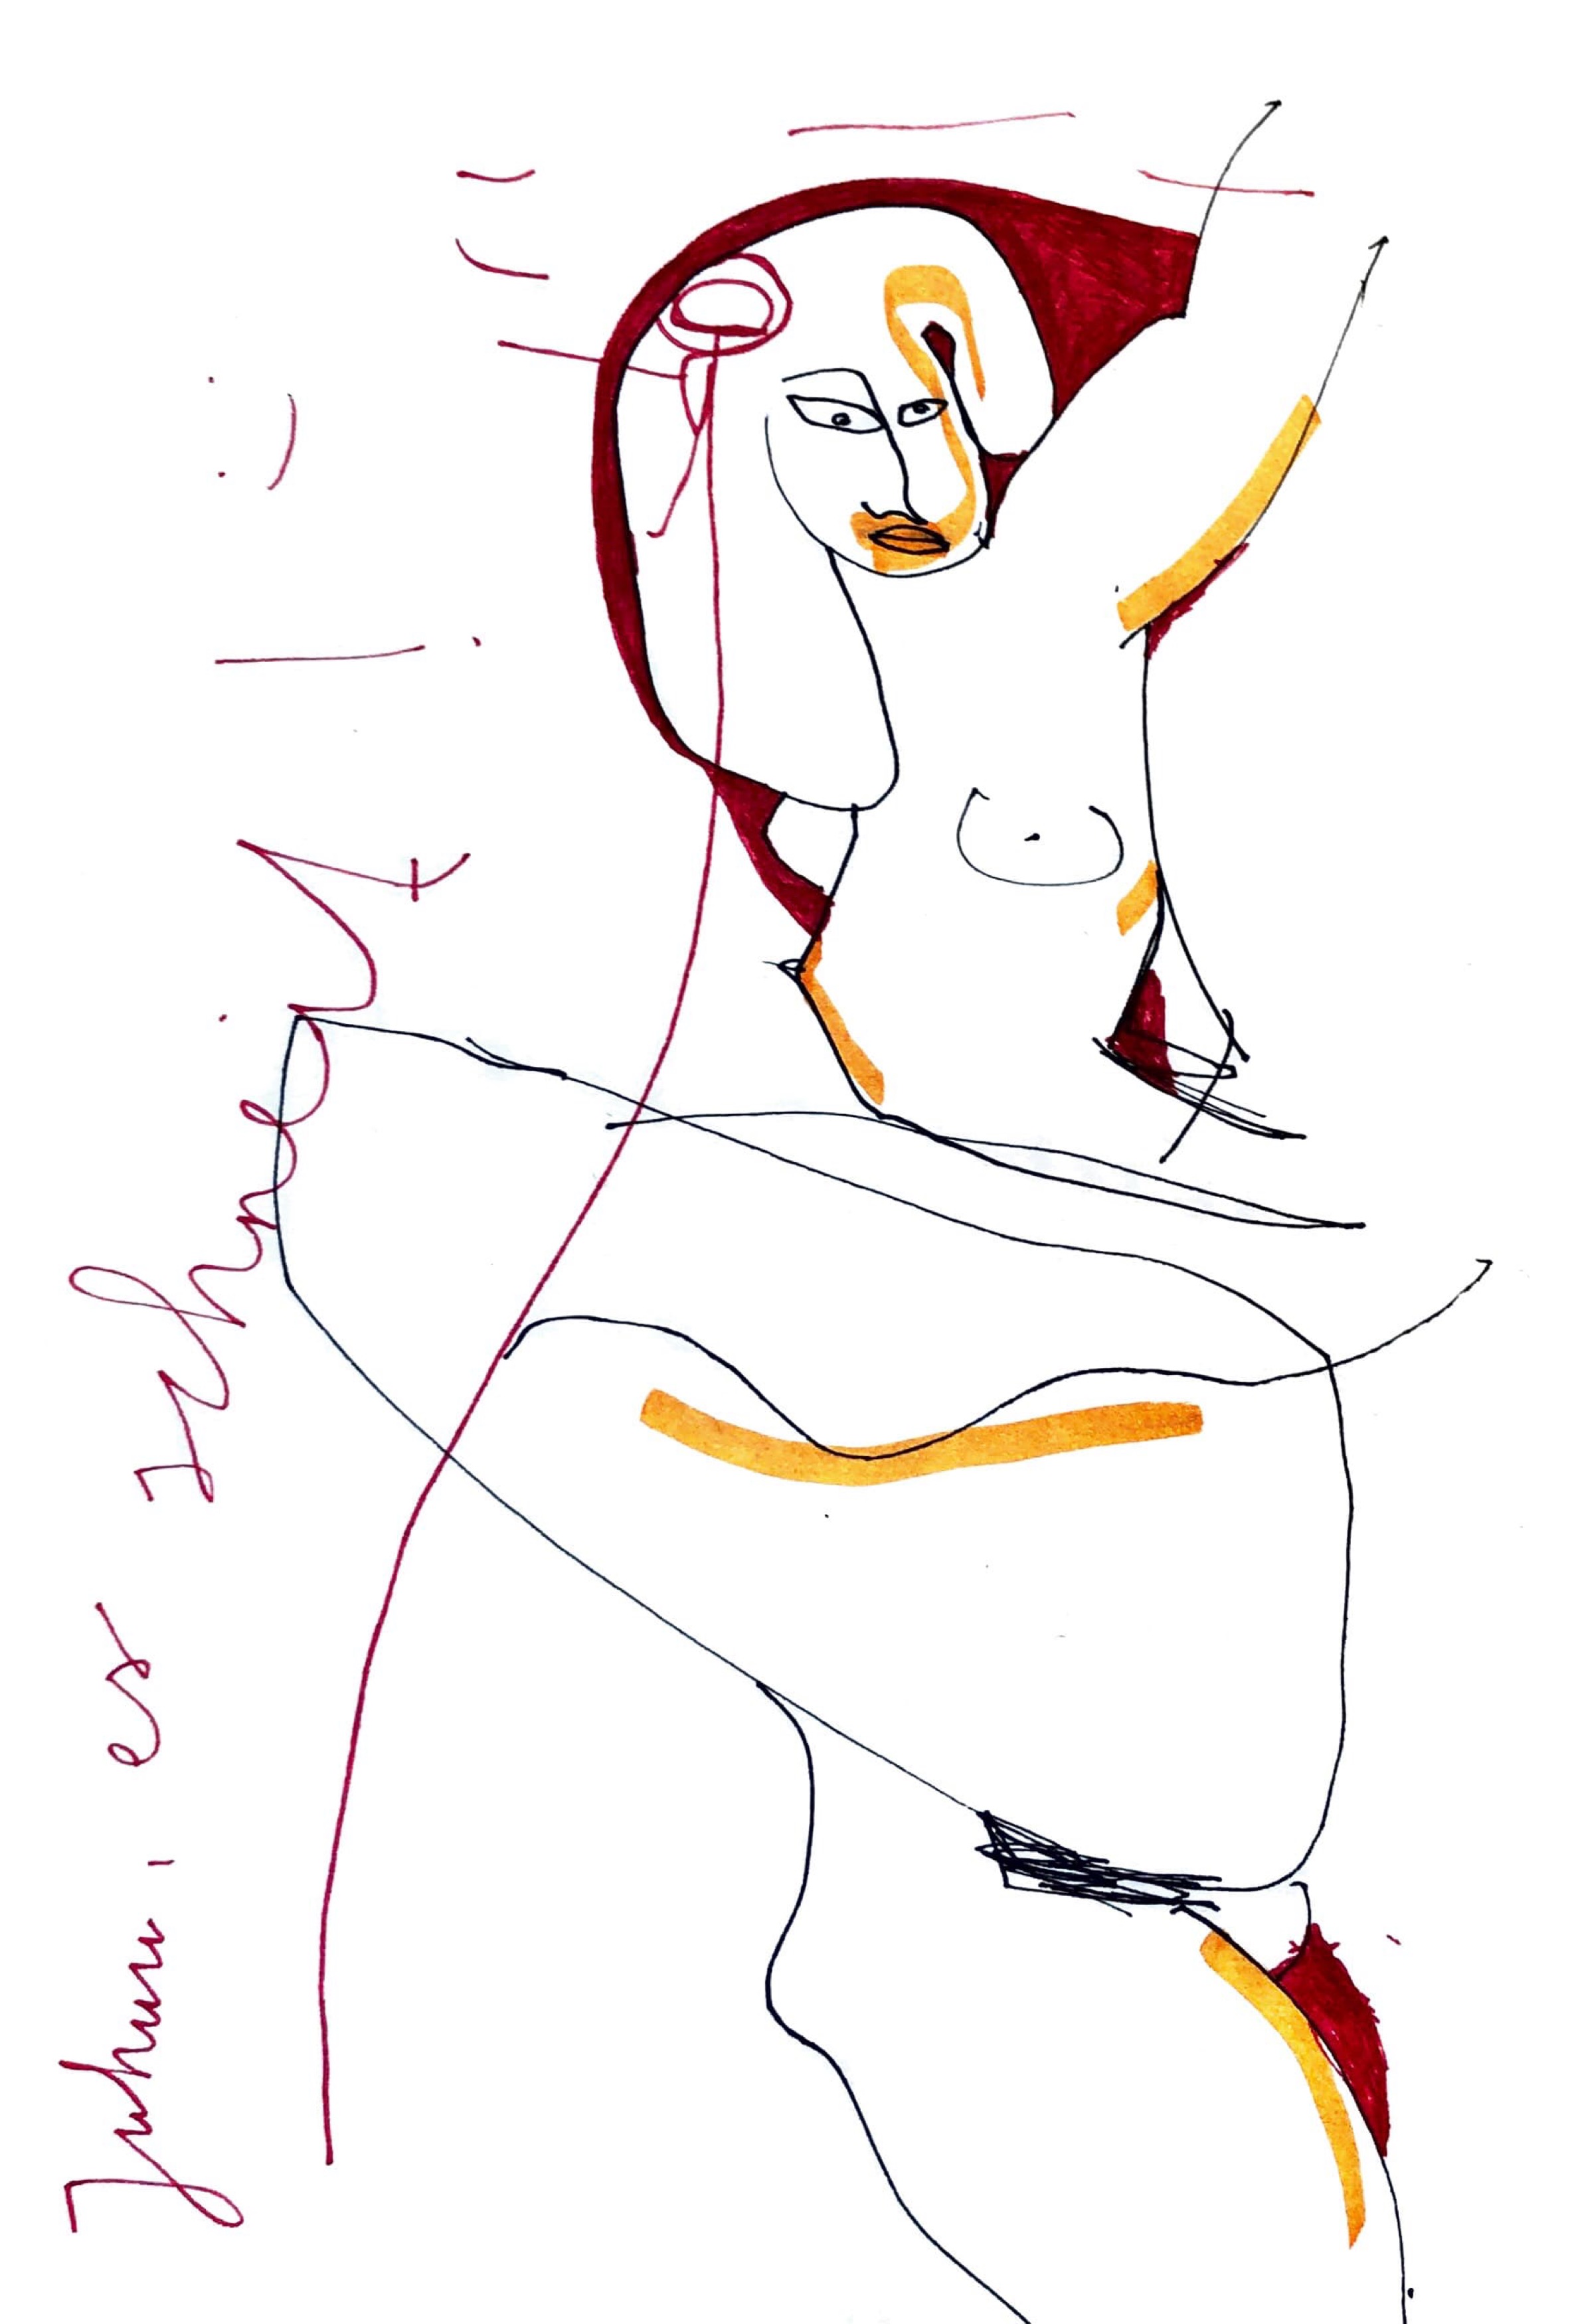 Juhuu, es schneit